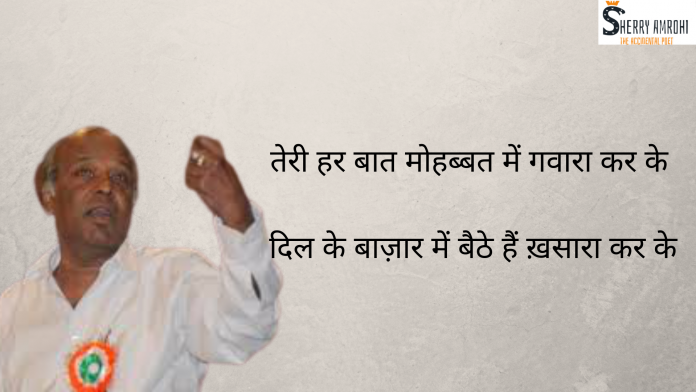 SHERRY AMROHI
THE ACCIDENTAL POET
तेरी हर बात मोहब्बत में गवारा कर के
दिल के बाज़ार में बैठे हैं ख़सारा कर के